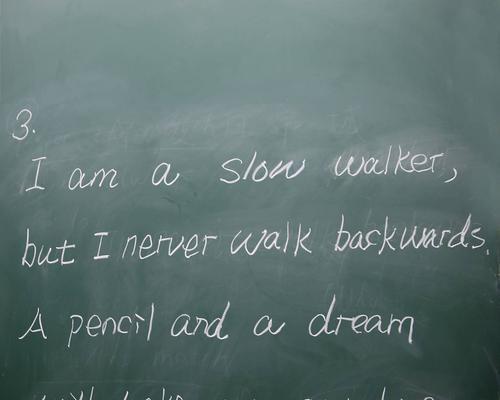 3.
I am a slow walker,
but I nerver walk backwards.
A pencil and a dream